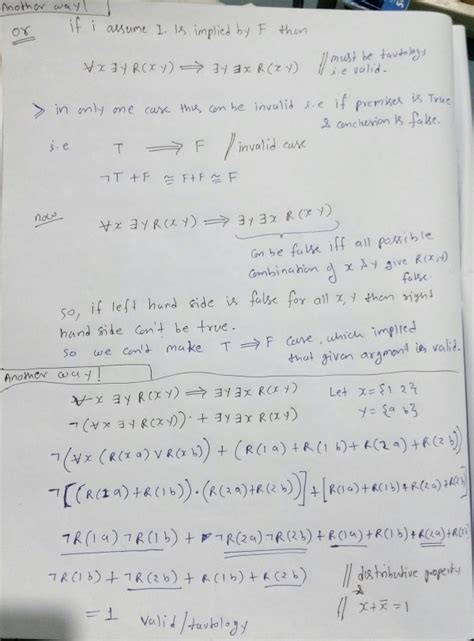 Another way!
or if i assume I. is implied by F then
∀x ∃y R(x y) ⟹ ∃y ∃x R(x y) // must be tautology
i.e valid.
> in only one case this can be invalid i.e if premises is True
& conclusion is false.
i.e T ⟹ F // invalid case
¬T + F ≅ F+F ≅ F
now ∀x ∃y R(x y) ⟹ ∃y ∃x R(x y)
can be false iff all possible
combination of x & y give R(x,y)
false.
so, if left hand side is false for all x, y then right
hand side can't be true.
so we can't make T ⟹ F case, which implied
that given argment is valid.
Another way!
∀x ∃y R(x y) ⟹ ∃y ∃x R(x y) Let x = {1 2}
¬(∀x ∃y R(x y)) + ∃y ∃x R(x y) y = {a b}
¬(∀x (R(x a) ∨ R(x b)) + (R(1 a) + R(1 b) + R(2 a) + R(2 b))
¬[(R(1 a) + R(1 b)) · (R(2a) + R(2 b))] + [R(1a) + R(1 b) + R(2a) + R(2b)]
¬R(1 a) ¬R(1 b) + ¬R(2a) ¬R(2 b) + R(1a) + R(1 b) + R(2a) + R(2b)
¬R(1 b) + ¬R(2 b) + R(1 b) + R(2 b) // distributive property
&
= 1 valid/tautology // x + x̄ = 1